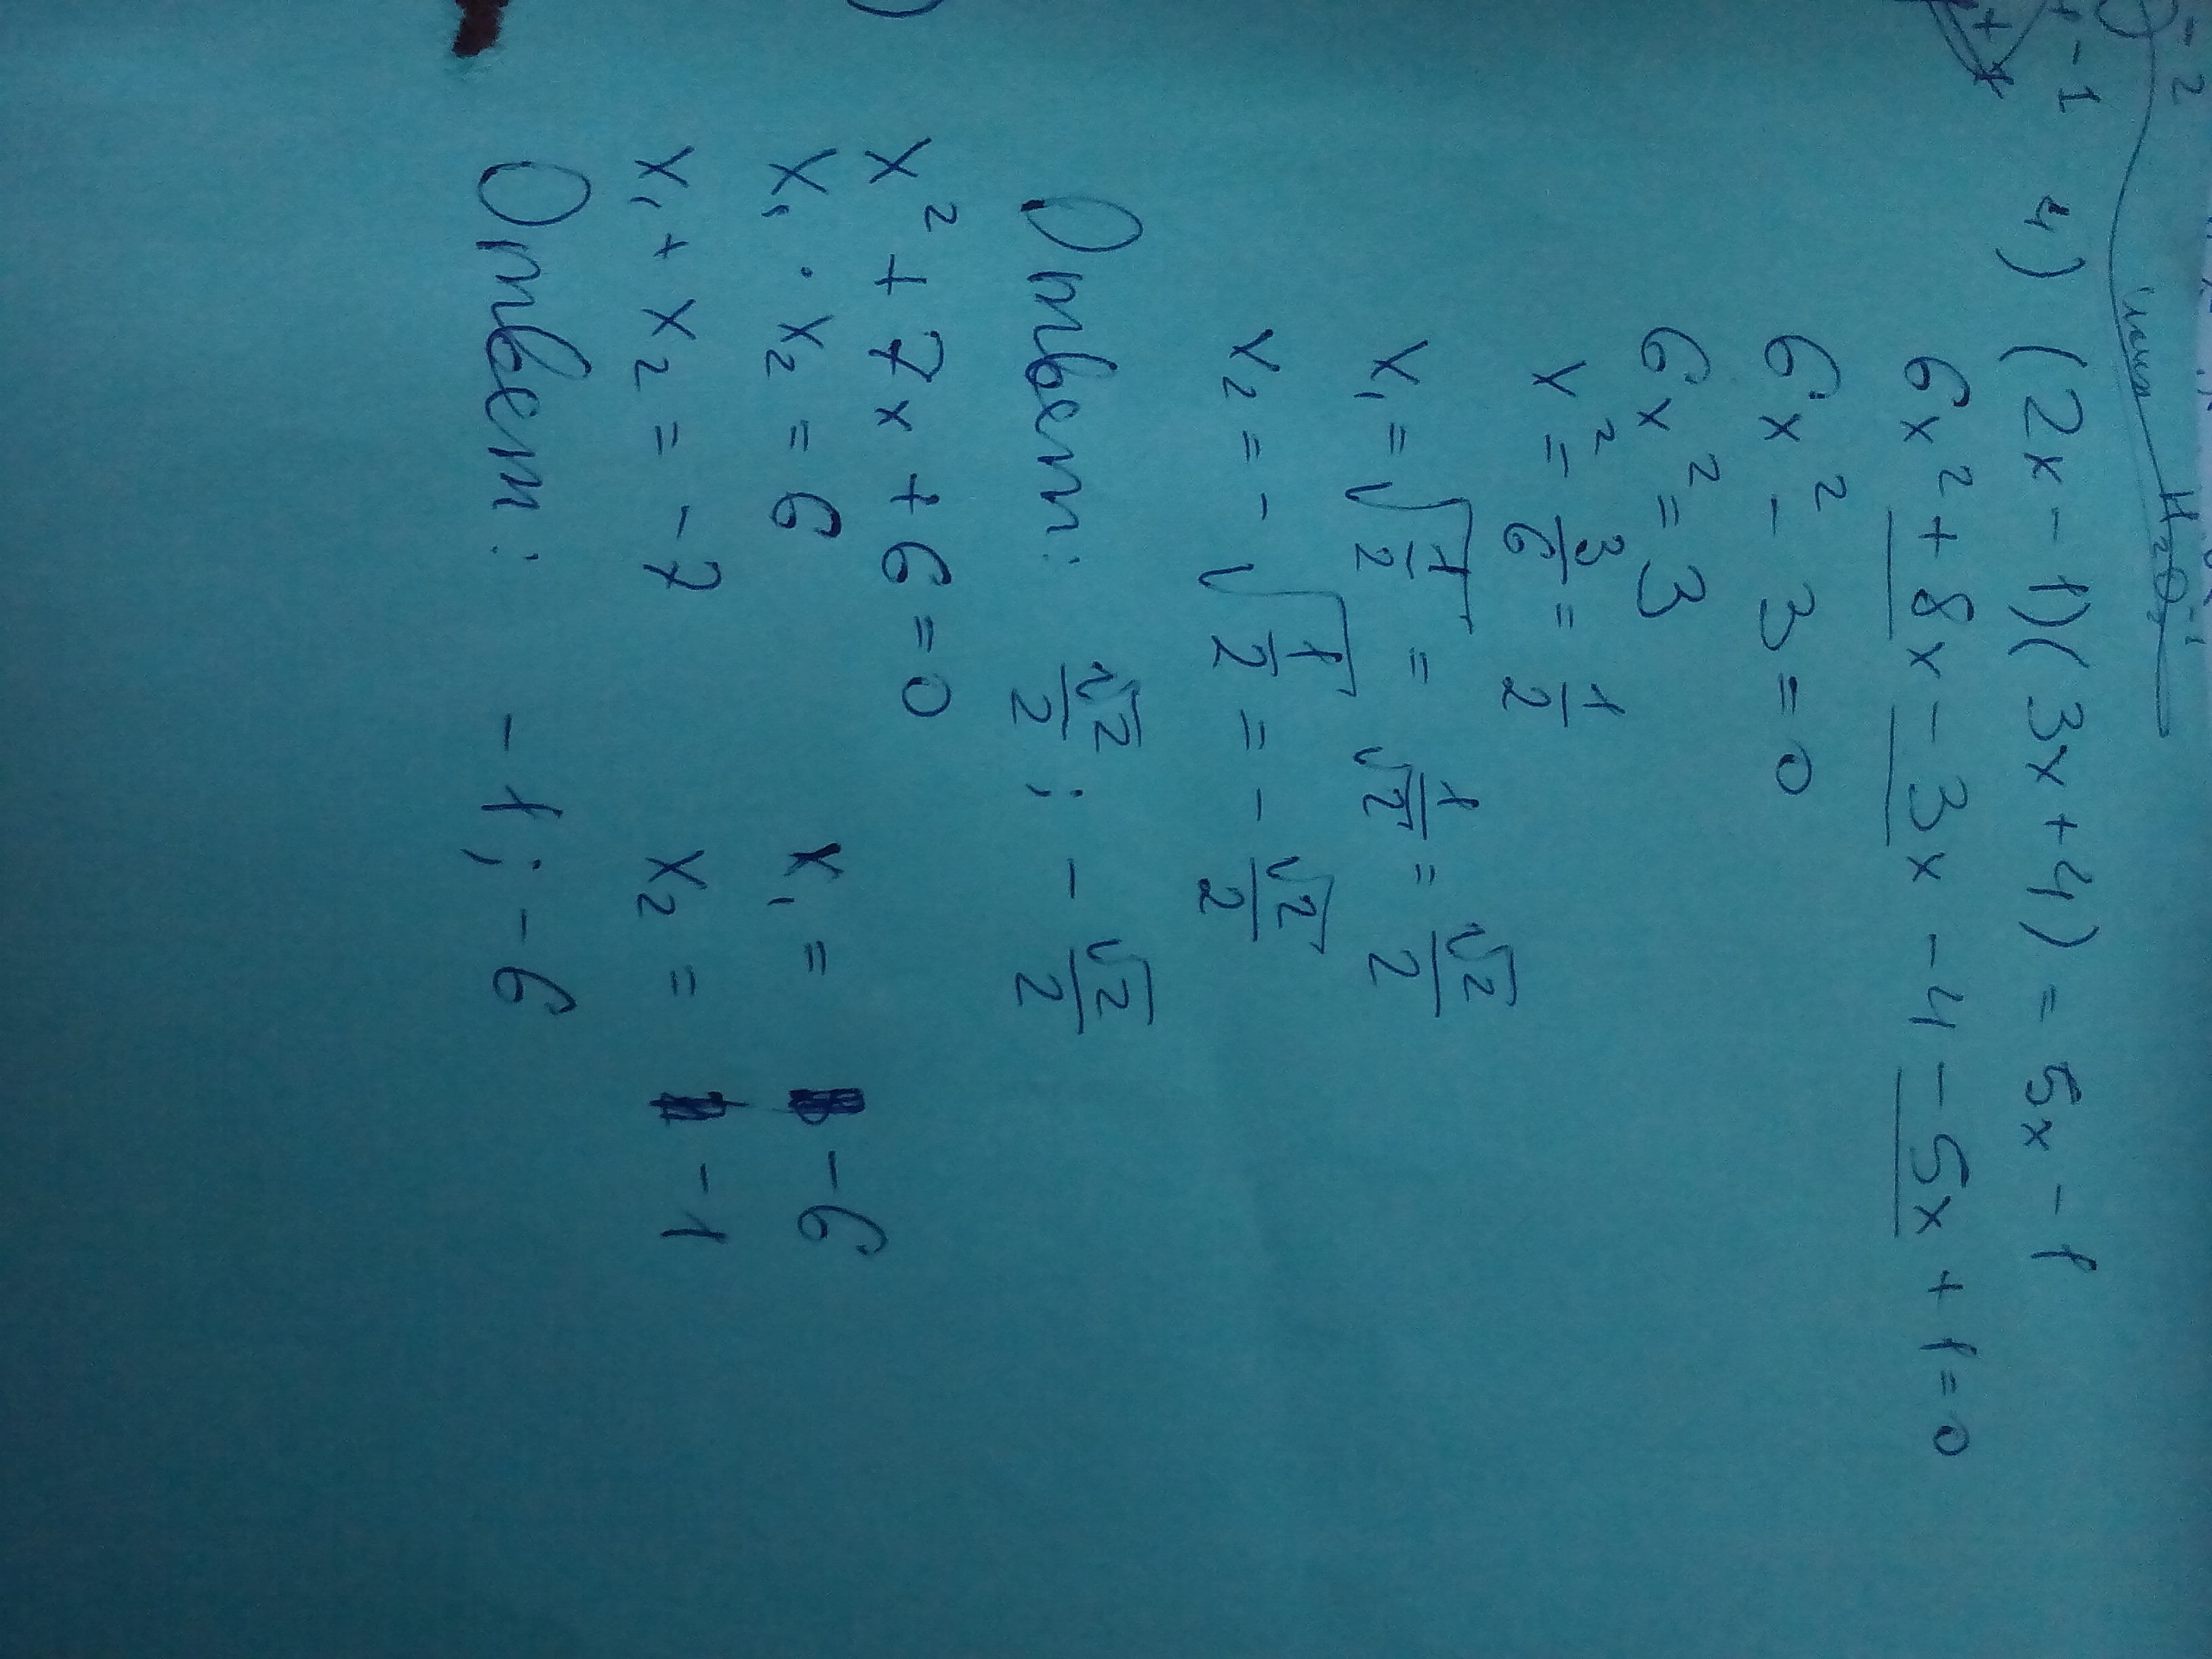 - 2
+ - 1
H₂O
4) (2x - 1)(3x + 4) = 5x - 1
6x² + 8x - 3x - 4 - 5x + 1 = 0
6x² - 3 = 0
6x² = 3
x² = 3/6 = 1/2
x₁ = √(1/2) = 1/√2 = √2/2
x₂ = - √(1/2) = - √2/2
Ответ: √2/2 ; - √2/2
x² + 7x + 6 = 0
x₁ · x₂ = 6 x₁ = - 6
x₁ + x₂ = - 7 x₂ = - 1
Ответ: - 1 ; - 6